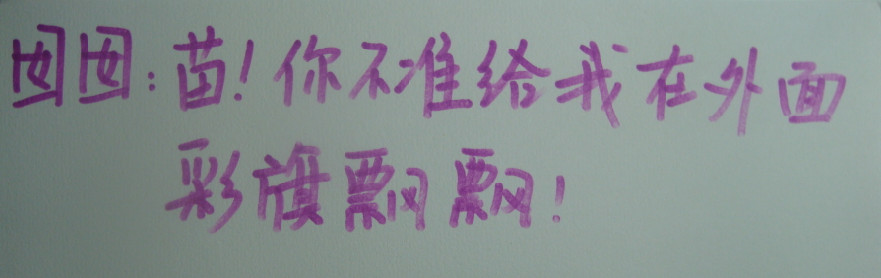 囡囡：苗！你不准给我在外面
彩旗飘飘！